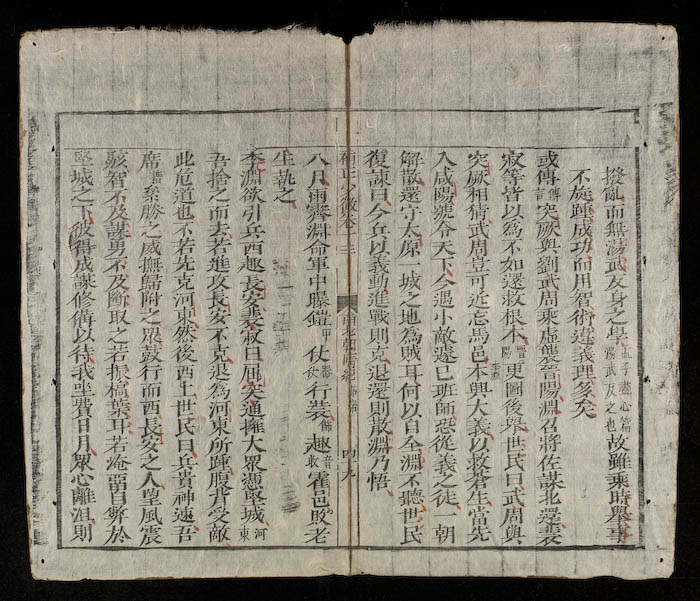 撥亂而無湯武反身之學孟子盡心篇湯武反之也故雖乘時舉事
不旋踵成功而用智術違義理多矣
或傳訛突厥與劉武周乘虛襲晉陽淵召將佐謀北還裴
寂等皆以為不如還救根本晉陽更圖後舉世民曰武周與
突厥相猜武周豈可近忘馬邑本興大義以救蒼生當先
入咸陽號令天下今遇小敵遽已班師恐從義之徒一朝
解散還守太原一城之地為賊耳何以自全淵不聽世民
復諫曰今兵以義動進戰則克退還則散淵乃悟
南北朝隋紀
四九
八月雨霽淵命軍中曝鎧甲仗器仗行裝飾趣音收霍邑敗老
生執之
李淵欲引兵西趣長安裴寂曰屈突通擁大眾憑堅城河東
吾捨之而去若進攻長安不克退為河東所踵腹背受敵
此危道也不若先克河東然後西上世民曰兵貴神速吾
席累勝之威撫歸附之眾鼓行而西長安之人望風震
駭智不及謀勇不及斷取之若振槁葉耳若淹留自弊於
堅城之下彼得成謀修備以待我坐費日月眾心離沮則